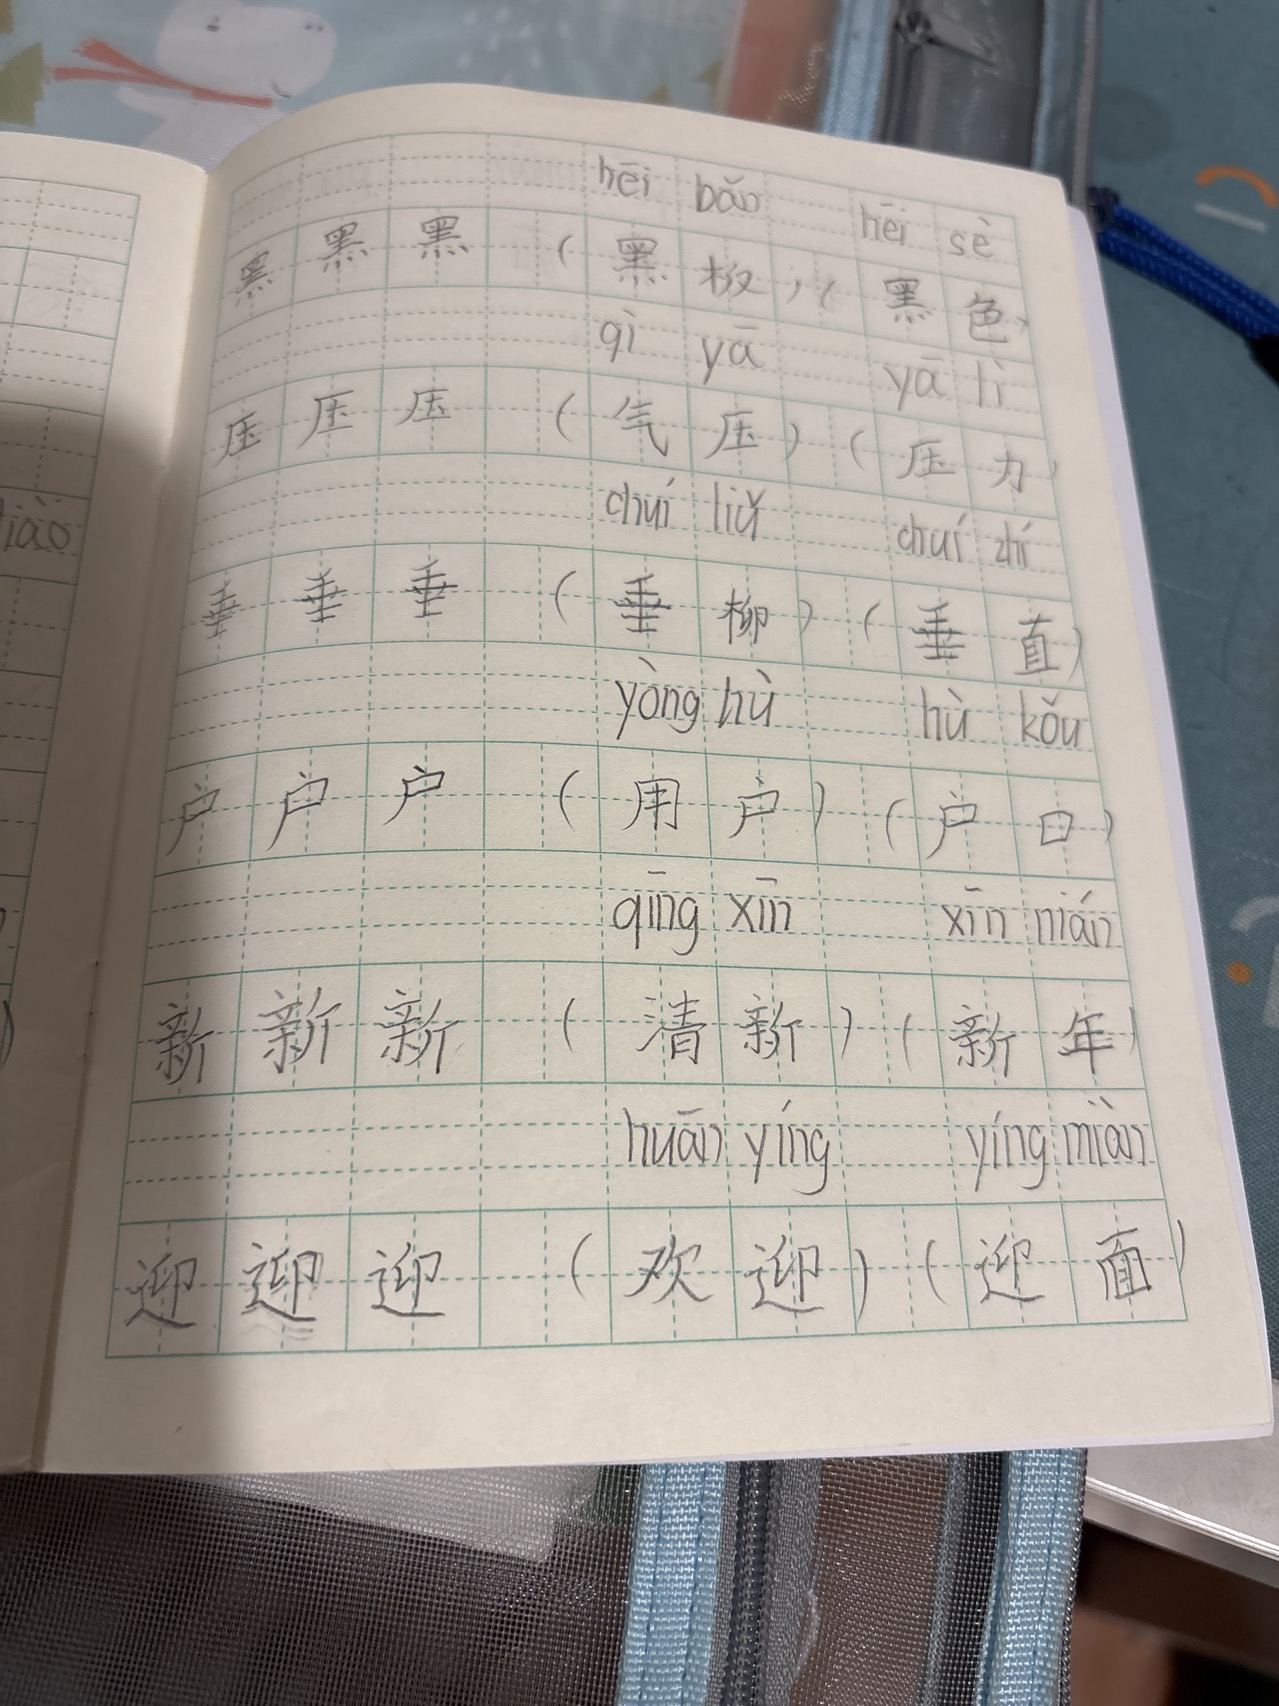 hēi bǎn hēi sè
黑 黑 黑 ( 黑 板 ) ( 黑 色 )
qì yā yā lì
压 压 压 ( 气 压 ) ( 压 力 )
chuí liǔ chuí zhí
垂 垂 垂 ( 垂 柳 ) ( 垂 直 )
yòng hù hù kǒu
户 户 户 ( 用 户 ) ( 户 口 )
qīng xīn xīn nián
新 新 新 ( 清 新 ) ( 新 年 )
huān yíng yíng miàn
迎 迎 迎 ( 欢 迎 ) ( 迎 面 )